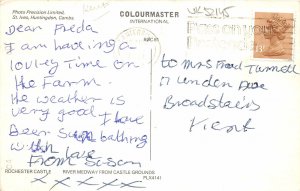 Photo Precision Limited,
St. Ives, Huntingdon, Cambs.
COLOURMASTER
INTERNATIONAL
Dear Freda
I am having a
lovley Time on
the Farm.
The weather is
very good I have
Been Sun bathing
with love
From Susan
x x x x x
to Mrs Fred Tunnell
17 Linden Ave
Broadstairs
Kent
ROCHESTER CASTLE
RIVER MEDWAY FROM CASTLE GROUNDS
PLX4141